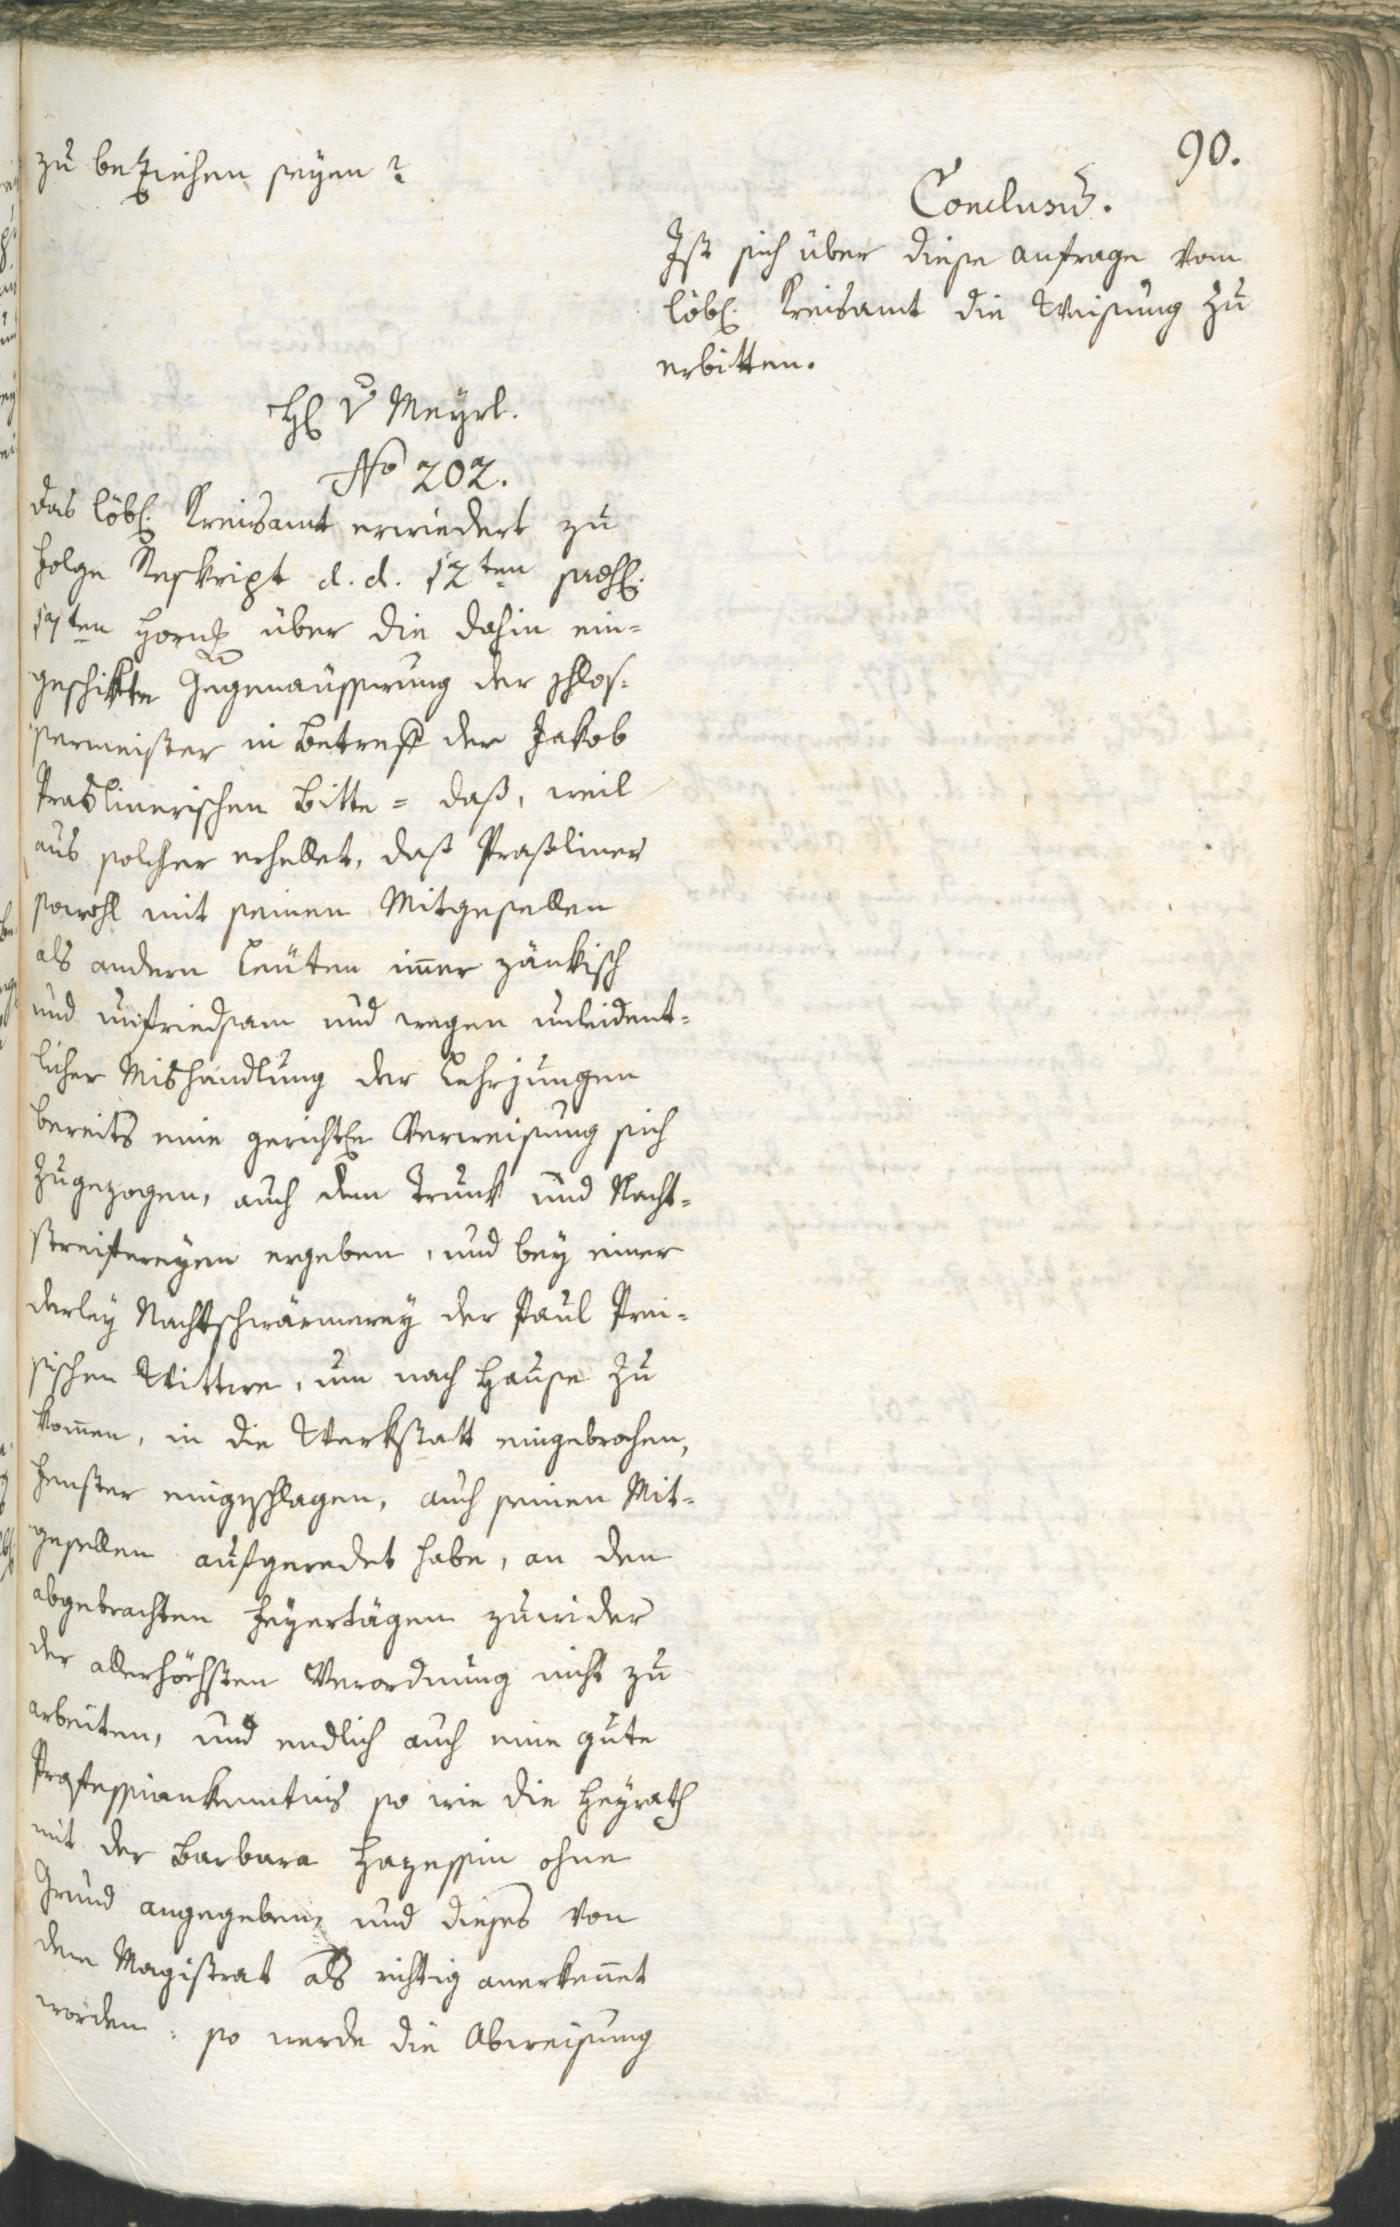 90.
zu beziehen seyen?
Conclusum.
Ist sich über diese anfrage vom
löbl. Kreisamt die Weisung zu
erbitten.
H. v Meyrl.
No 202.
Das löbl. Kreisamt erwiedert zu
Folge Reskript d. d. 12ten praes.
17ten Horn. über die dahin ein=
geschikte Gegenäusserung der Schlos=
sermeister in Betreff der Jakob
Praslinerischen Bitte = daß, weil
aus solcher erhellet, daß Praßliner
sowohl mit seinen Mitgesellen
als andern Leüten im̄er zänkisch
und unfriedsam und wegen unleident=
licher Mishandlung der Lehrjungen
bereits eine gerichtl. Verweisung sich
zugezogen, auch dem Trunk und Nacht=
streifereyen ergeben, und bey einer
derley Nachtschwärmerey der Paul Prei=
sischen Wittwe, um nach Hause zu
kom̄en, in die Werkstatt eingebrochen,
Fenster eingeschlagen, auch seinen Mit=
gesellen aufgeredet habe, an den
abgebrachten Feyertägen zuwider
der allerhöchsten Verordnung nicht zu
arbeiten, und endlich auch eine gute
Professionkenntnis so wie die Heyrath
mit der Barbara Hazessin ohne
Grund angegeben, und dieses von
dem Magistrat als richtig anerken̄et
worden = so werde die Abweisung